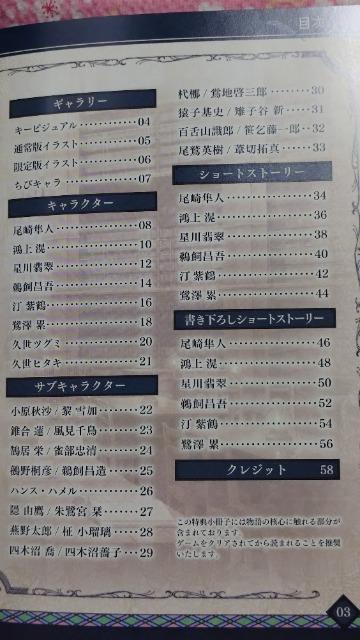 日本
ギャラリー
キービジュアル…………04
通常版イラスト…………05
限定版イラスト…………06
ちびキャラ…………07
キャラクター
尾崎隼人…………08
鴻上 滉…………10
星川翡翠…………12
鵜飼昌吾…………14
汀 紫鶴…………16
鷺澤 累…………18
久世ツグミ…………20
久世ヒタキ…………21
サブキャラクター
小原秋沙 / 黎 雪加………22
錐合 蓮 / 風見千鳥………23
鵠居 栄 / 雀部忠清………24
鵺野桐彦 / 鵜飼昌造……25
ハンス・ハメル…………26
隠 由鷹 / 朱鷺宮 栞……27
燕野太郎 / 柾 小瑠璃……28
四木沼 喬 / 四木沼薔子…29
杙梛 / 鴬地啓三郎………30
猿子基史 / 雉子谷 新……31
百舌山識郎 / 笹乞藤一郎…32
尾鷲英樹 / 葦切拓真……33
ショートストーリー
尾崎隼人…………34
鴻上 滉…………36
星川翡翠…………38
鵜飼昌吾…………40
汀 紫鶴…………42
鷺澤 累…………44
書き下ろしショートストーリー
尾崎隼人…………46
鴻上 滉…………48
星川翡翠…………50
鵜飼昌吾…………52
汀 紫鶴…………54
鷺澤 累…………56
クレジット 58
この特典小冊子には物語の核心に触れる部分が
含まれております。
ゲームをクリアされてから読まれることを推奨
いたします。
03